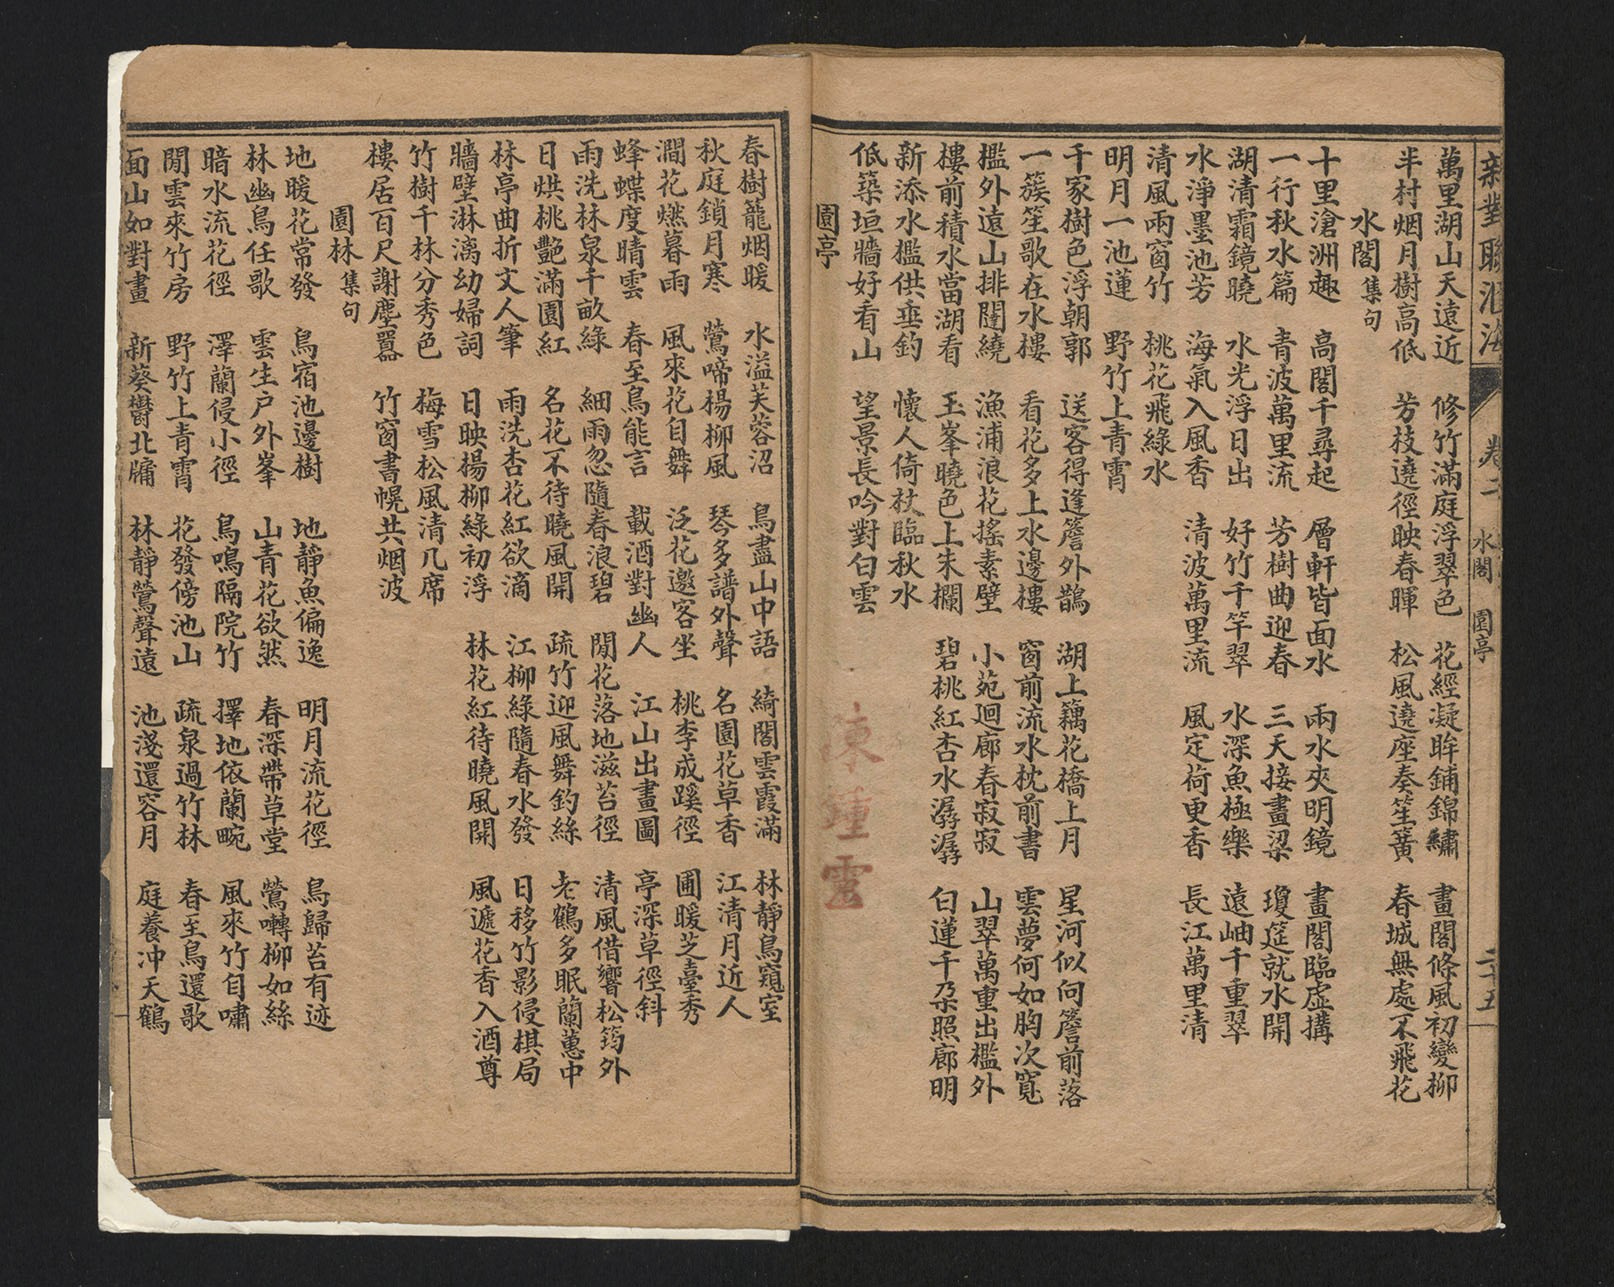 新對聯滙海 卷二 水閣 園亭 二十五
萬里湖山天遠近 修竹滿庭浮翠色 花經凝眸鋪錦繡 畫閣條風初變柳
半村烟月樹高低 芳枝遶徑映春暉 松風遶座奏笙簧 春城無處不飛花
水閣集句
十里滄洲趣 高閣千尋起 層軒皆面水 兩水夾明鏡 畫閣臨虛搆
一行秋水篇 青波萬里流 芳樹曲迎春 三天接畫梁 瓊筵就水開
湖清霜鏡曉 水光浮日出 好竹千竿翠 水深魚極樂 遠岫千重翠
水淨墨池芳 海氣入風香 清波萬里流 風定荷更香 長江萬里清
清風雨窗竹 桃花飛綠水
明月一池蓮 野竹上青霄
千家樹色浮朝郭 送客得逢簷外鵲 湖上藕花橋上月 星河似向簷前落
一簇笙歌在水樓 看花多上水邊樓 窗前流水枕前書 雲夢何如胸次寬
檻外遠山排闥繞 漁浦浪花搖素壁 小苑迴廊春寂寂 山翠萬重出檻外
樓前積水當湖看 玉峯曉色上朱欄 碧桃紅杏水潺潺 白蓮千朵照廊明
新添水檻供垂釣 懷人倚杖臨秋水
低築垣牆好看山 望景長吟對白雲
園亭
陳鍾靈
春樹籠烟暖 水溢芙蓉沼 鳥盡山中語 綺閣雲霞滿 林靜鳥窺室
秋庭鎖月寒 鶯啼楊柳風 琴多譜外聲 名園花草香 江清月近人
澗花燃暮雨 風來花自舞 泛花邀客坐 桃李成蹊徑 圃暖芝臺秀
蜂蝶度晴雲 春至鳥能言 載酒對幽人 江山出畫圖 亭深草徑斜
雨洗林泉千畝綠 細雨忽隨春浪碧 閒花落地滋苔徑 清風借響松筠外
日烘桃艷滿園紅 名花不待曉風開 疏竹迎風舞釣絲 老鶴多眠蘭蕙中
林亭曲折文人筆 雨洗杏花紅欲滴 江柳綠隨春水發 日移竹影侵棋局
牆壁淋漓幼婦詞 日映楊柳綠初浮 林花紅待曉風開 風遞花香入酒尊
竹樹千林分秀色 梅雪松風清几席
樓居百尺謝塵囂 竹窗書幌共烟波
園林集句
地暖花常發 鳥宿池邊樹 地靜魚偏逸 明月流花徑 鳥歸苔有迹
林幽鳥任歌 雲生户外峯 山青花欲然 春深帶草堂 鶯囀柳如絲
暗水流花徑 澤蘭侵小徑 鳥鳴隔院竹 擇地依蘭畹 風來竹自嘯
閒雲來竹房 野竹上青霄 花發傍池山 疏泉過竹林 春至鳥還歌
面山如對畫 新葵鬱北牖 林靜鶯聲遠 池淺還容月 庭養冲天鶴